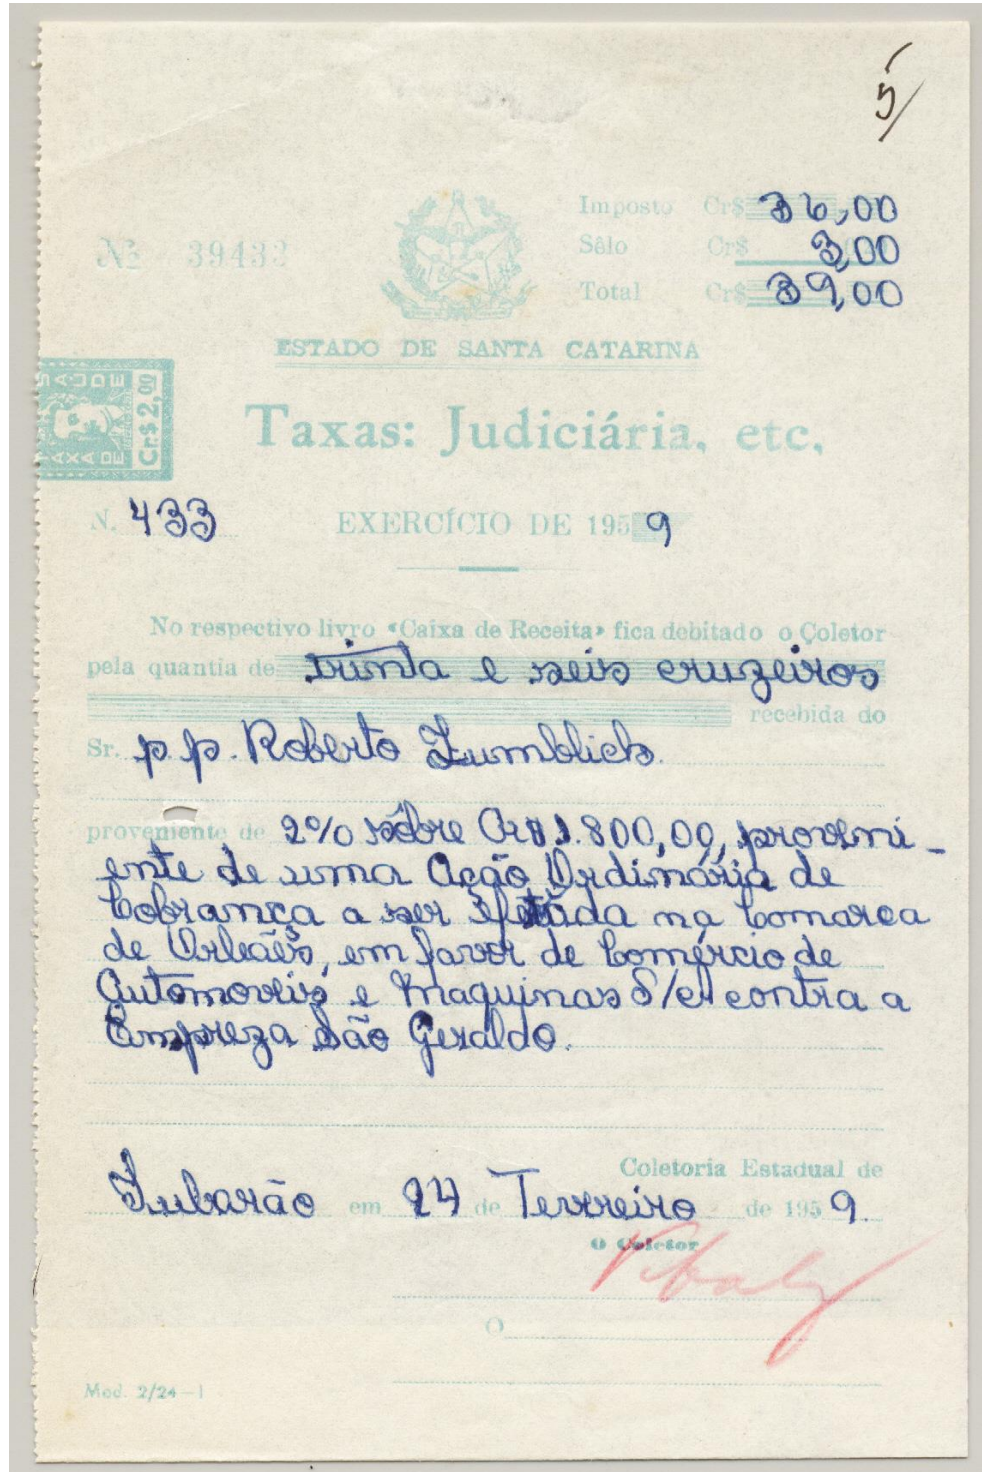 5/
Imposto Cr$ 36,00
Nº 39433
Sêlo Cr$ 3,00
Total Cr$ 39,00
ESTADO DE SANTA CATARINA
SAÚDE
TAXA DE
Cr.$ 2,00
Taxas: Judiciária, etc,
N. 433 EXERCÍCIO DE 1959
No respectivo livro «Caixa de Receita» fica debitado o Coletor
pela quantia de trinta e seis cruzeiros
recebida do
Sr. p. p. Roberto Zumblick.
proveniente de 2% sôbre Cr$ 1.800,00, proveni-
ente de uma Ação Ordinária de
Cobrança a ser efetuada na Comarca
de Orleães, em favor de Comércio de
Automoveis e Maquinas S/A contra a
Empreza São Geraldo.
Coletoria Estadual de
Tubarão em 24 de Fevereiro de 1959.
O Coletor
O
Mod. 2/24-1